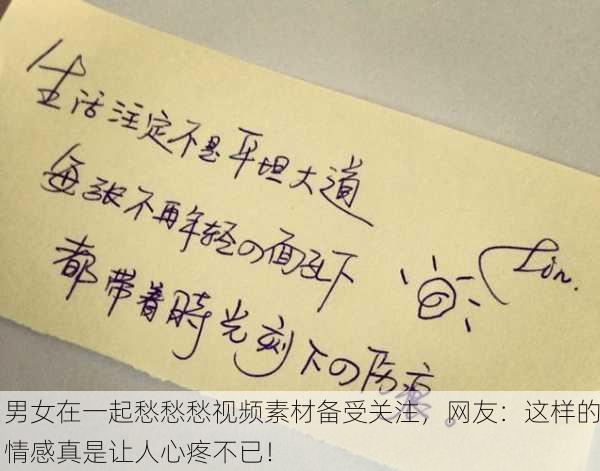 生活注定不是平坦大道
每张不再年轻の面孔下
都带着時光刻下の伤痕。
Lin.
男女在一起愁愁愁视频素材备受关注，网友：这样的
情感真是让人心疼不已！